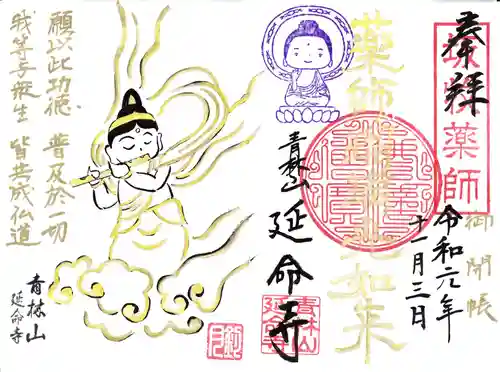 奉拝
薬師瑠璃光如来
御開帳
令和元年
十一月三日
青林山
延命寺
青林山
延命寺
願以此功徳 普及於一切
我等与衆生 皆共成仏道
青林山
延命寺